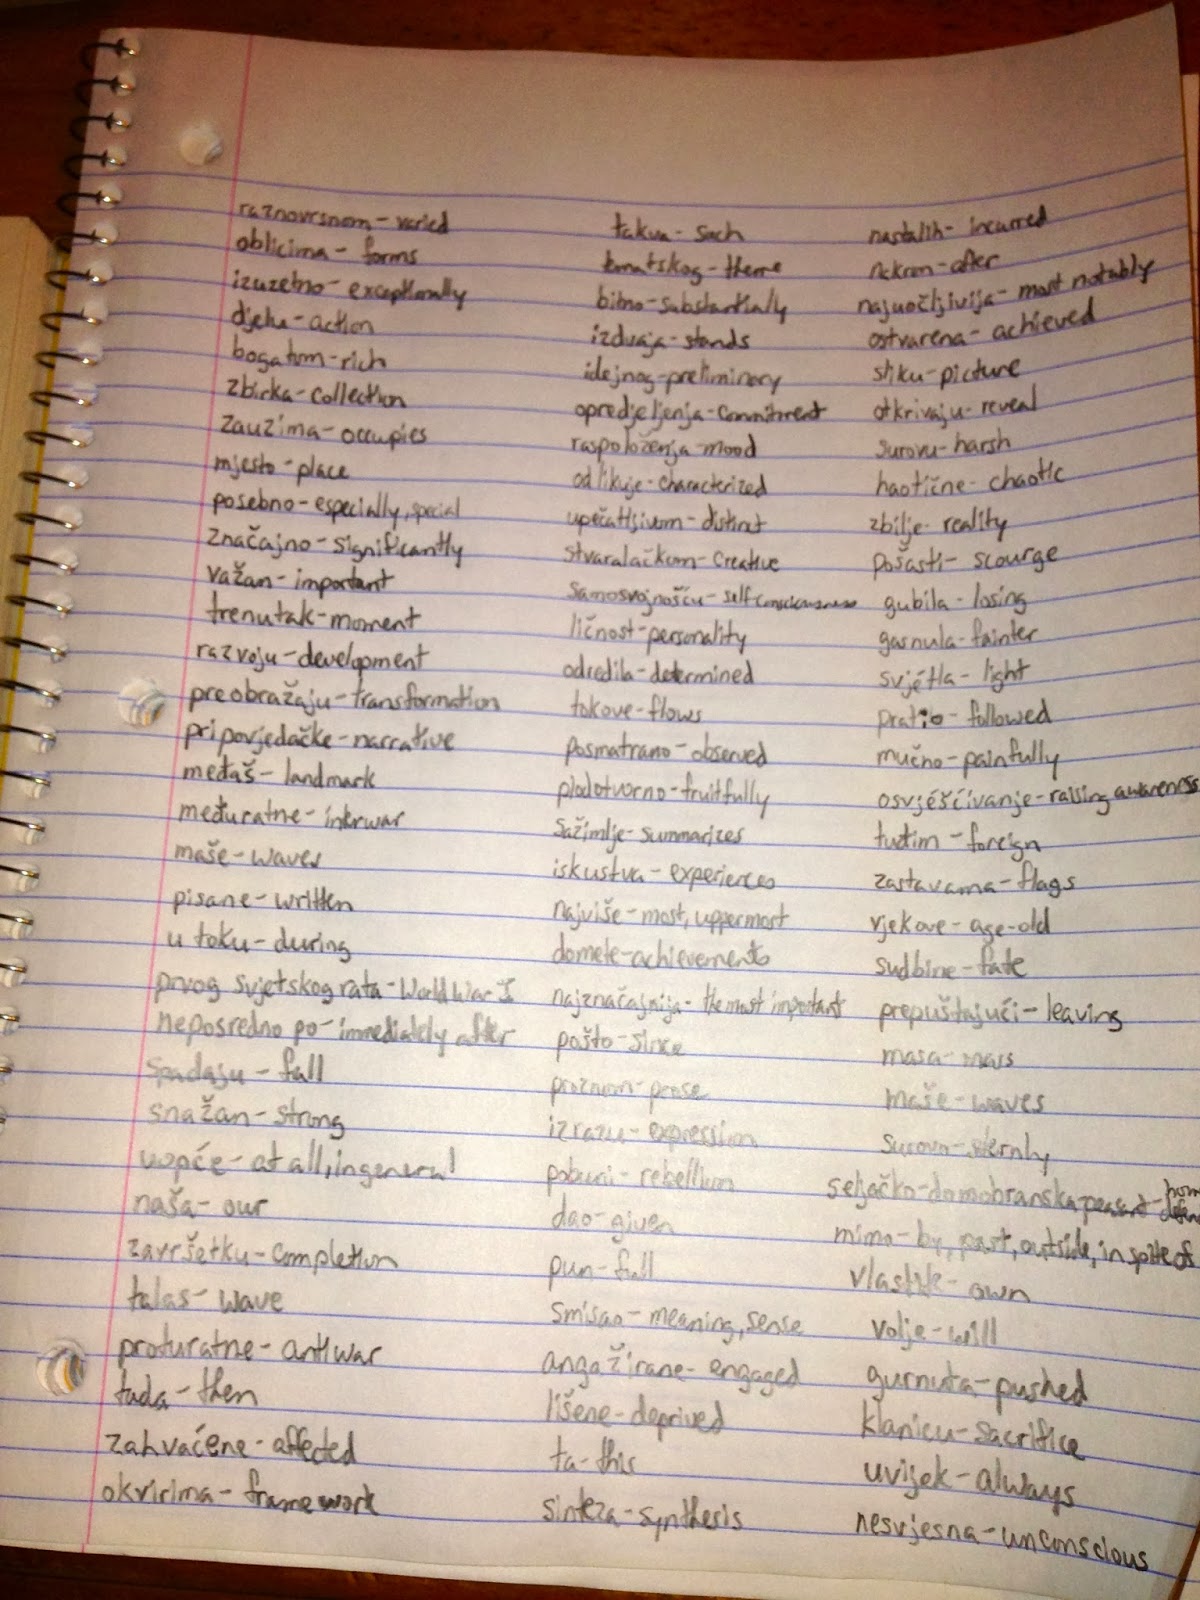 raznovrsnom - varied
oblicima - forms
izuzetno - exceptionally
djelu - action
bogatom - rich
zbirka - collection
zauzima - occupies
mjesto - place
posebno - especially, special
značajno - significantly
važan - important
trenutak - moment
razvoju - development
preobražaju - transformation
pripovjedačke - narrative
međaš - landmark
međuratne - interwar
maše - waves
pisane - written
u toku - during
prvog svjetskog rata - World War I
neposredno po - immediately after
spadaju - fall
snažan - strong
uopće - at all, in general
naša - our
završetku - completion
talas - wave
proturatne - antiwar
tada - then
zahvaćene - affected
okvirima - framework
takva - such
tematskog - theme
bitno - substantially
izdvaja - stands
idejnog - preliminary
opredjeljenja - commitment
raspoloženja - mood
odlikuje - characterized
upečatljivom - distinct
stvaralačkom - creative
samosvojnošću - self consciousness
ličnost - personality
odredila - determined
tokove - flows
posmatrano - observed
plodotvorno - fruitfully
sažimlje - summarizes
iskustva - experiences
najviše - most, uppermost
domete - achievements
najznačajnija - the most important
pošto - since
proznom - prose
izrazu - expression
pobuni - rebellion
dao - given
pun - full
smisao - meaning, sense
angažirane - engaged
lišene - deprived
ta - this
sinteza - synthesis
nastalih - incurred
nakon - after
najuočljivija - most notably
ostvarena - achieved
sliku - picture
otkrivaju - reveal
surovu - harsh
haotične - chaotic
zbilje - reality
pošasti - scourge
gubila - losing
gasnula - fainter
svjétla - light
pratio - followed
mučno - painfully
osvjéšćivanje - raising awareness
tuđim - foreign
zastavama - flags
vjekove - age-old
sudbine - fate
prepuštajući - leaving
masa - mass
maše - waves
surovo - sternly
seljačko-domobranska - peasant - home defence
mimo - by, past, outside, in spite of
vlastite - own
volje - will
gurnuta - pushed
klanicu - sacrifice
uvijek - always
nesvjesna - unconscious